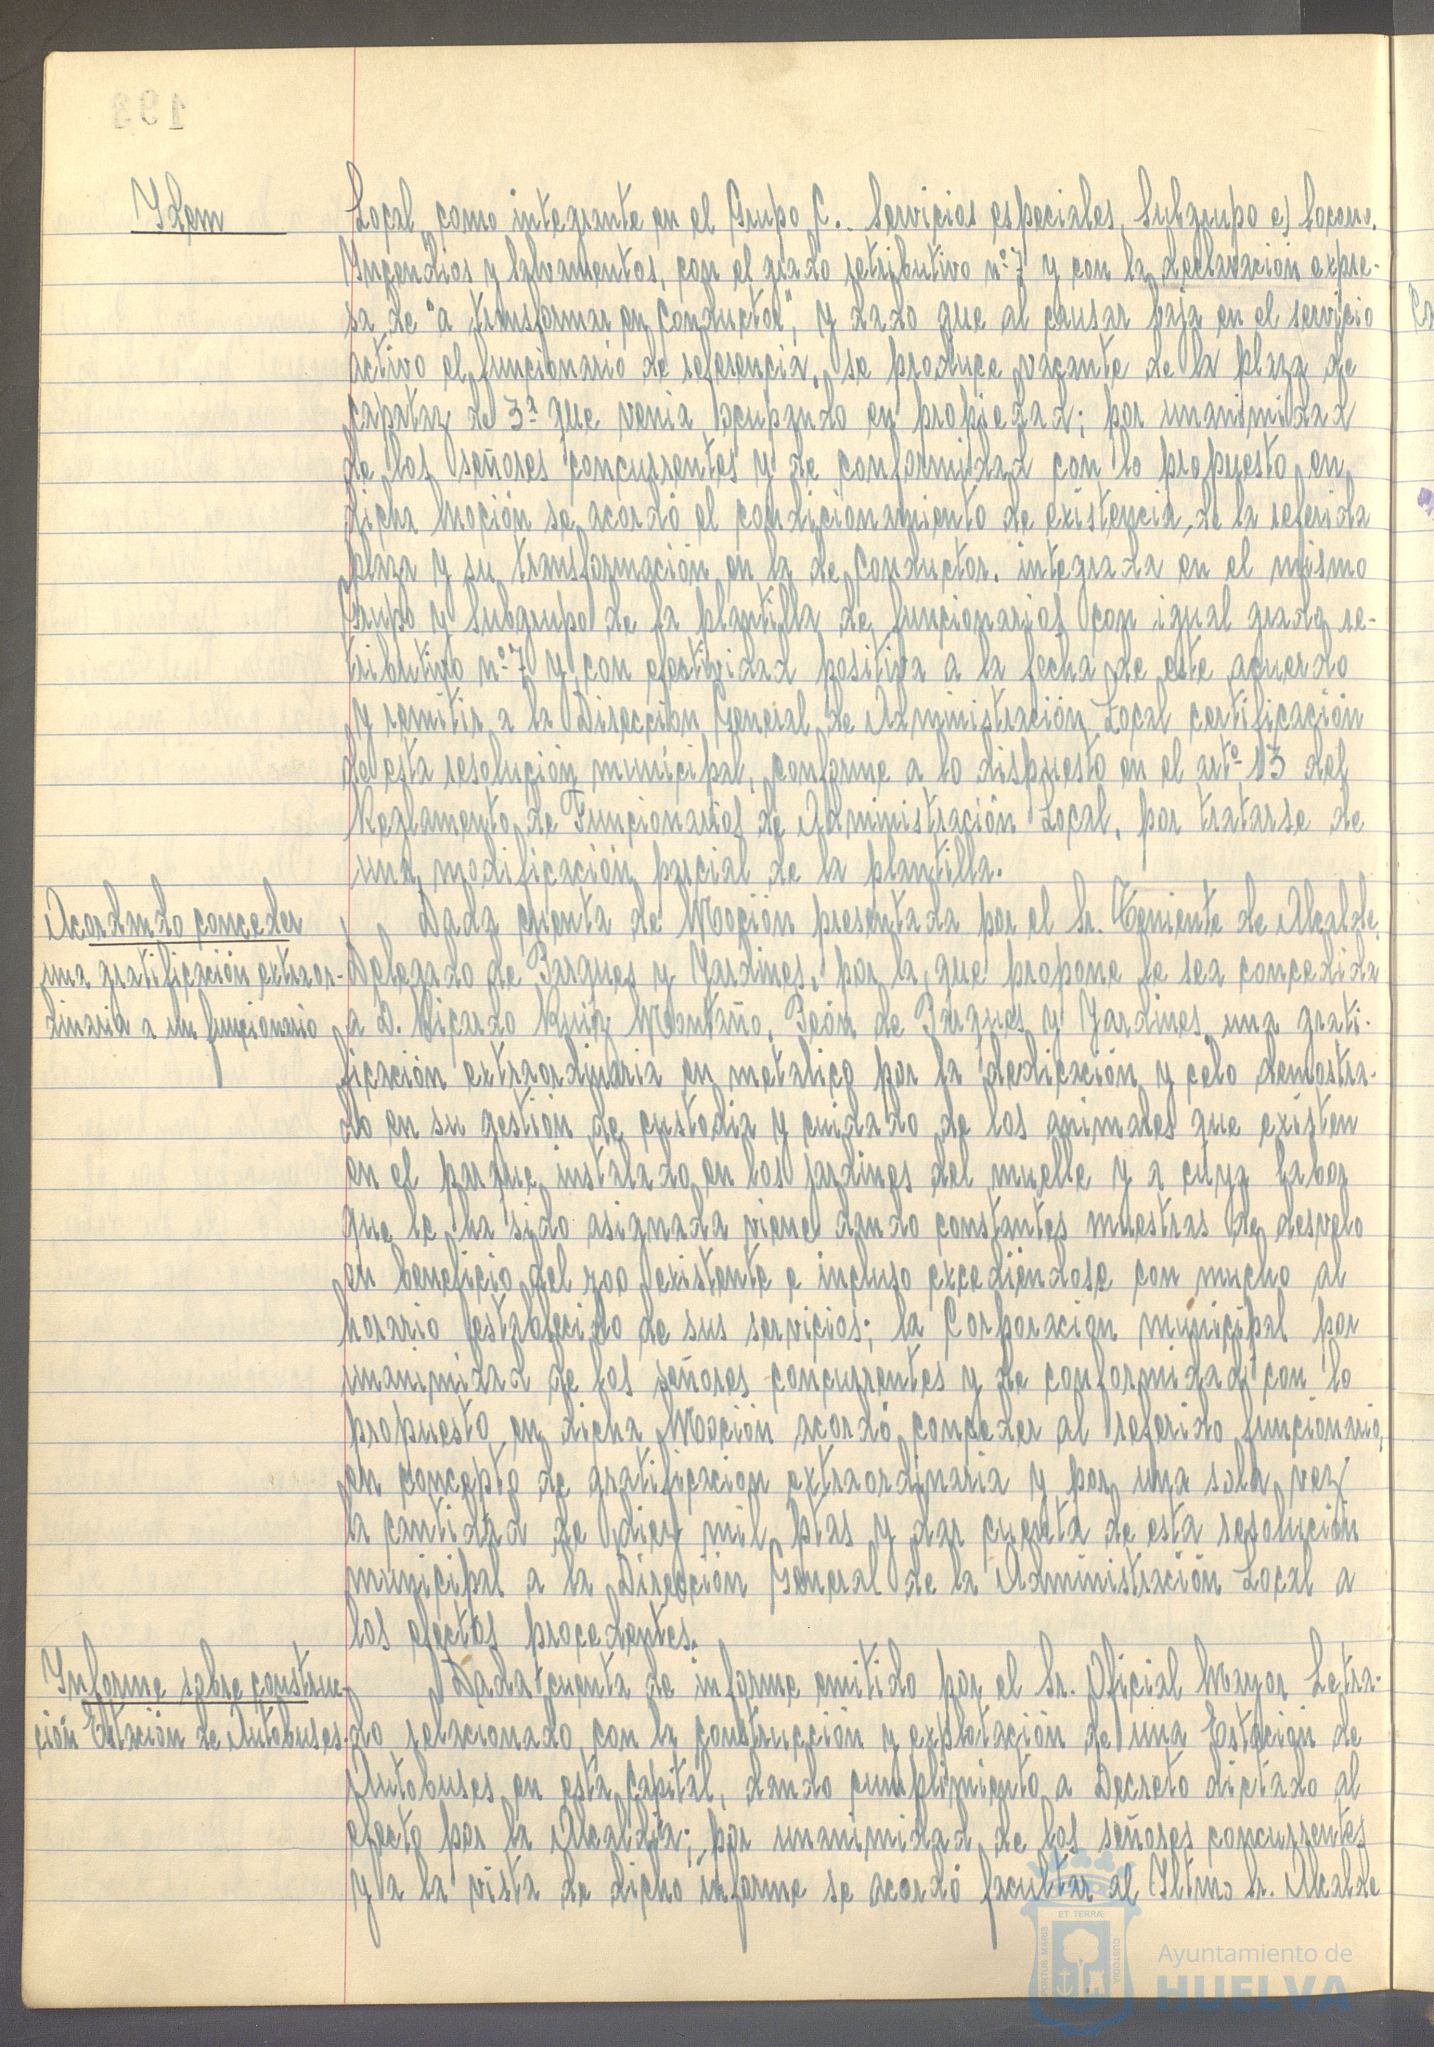 193
Idem
Local, como integrante en el Grupo C. Servicios especiales, Subgrupo e) Socorro.
Incendios y Salvamentos, con el grado retributivo nº 7 y con la declaración expre-
sa de "a transformar en Conductor", y dado que al causar baja en el servicio
activo el funcionario de referencia, se produce vacante de la plaza de
capataz de 3ª que venia ocupando en propiedad; por unanimidad
de los señores concurrentes y de conformidad con lo propuesto en
dicha Moción se acordó el condicionamiento de existencia de la referida
plaza y su transformación en la de Conductor, integrada en el mismo
Grupo y Subgrupo de la plantilla de funcionarios con igual grado re-
tributivo nº 7 y con efectividad positiva a la fecha de este acuerdo
y remitir a la Dirección General de Administración Local certificación
de esta resolución municipal, conforme a lo dispuesto en el artº 13 del
Reglamento de Funcionarios de Administración Local, por tratarse de
una modificación parcial de la plantilla.
Acordando conceder
una gratificación extraor-
dinaria a un funcionario
Dada cuenta de Moción presentada por el Sr. Teniente de Alcalde
Delegado de Parques y Jardines, por la que propone le sea concedida
a D. Ricardo Ruiz Montaño, Peón de Parques y Jardines una grati-
ficación extraordinaria en metalico por la dedicación y celo demostra-
do en su gestión de custodia y cuidado de los animales que existen
en el parque instalado en los jardines del muelle y a cuya labor
que le ha sido asignada viene dando constantes muestras de desvelo
en beneficio del zoo existente e incluso excediéndose con mucho al
horario establecido de sus servicios; la Corporación municipal por
unanimidad de los señores concurrentes y de conformidad con lo
propuesto en dicha Moción acordó conceder al referido funcionario,
en concepto de gratificación extraordinaria y por una sola vez
la cantidad de diez mil ptas y dar cuenta de esta resolución
municipal a la Dirección General de la Administración Local a
los efectos procedentes.
Informe sobre construc-
ción Estación de Autobuses
Dada cuenta de informe emitido por el Sr. Oficial Mayor Letra-
do relacionado con la construcción y explotación de una Estación de
Autobuses en esta Capital, dando cumplimiento a Decreto dictado al
efecto por la Alcaldía; por unanimidad de los señores concurrentes
y a la vista de dicho informe se acordó facultar al Iltmo Sr. Alcalde
PORTUS MARIS ET TERRAE CUSTODIA
Ayuntamiento de
HUELVA